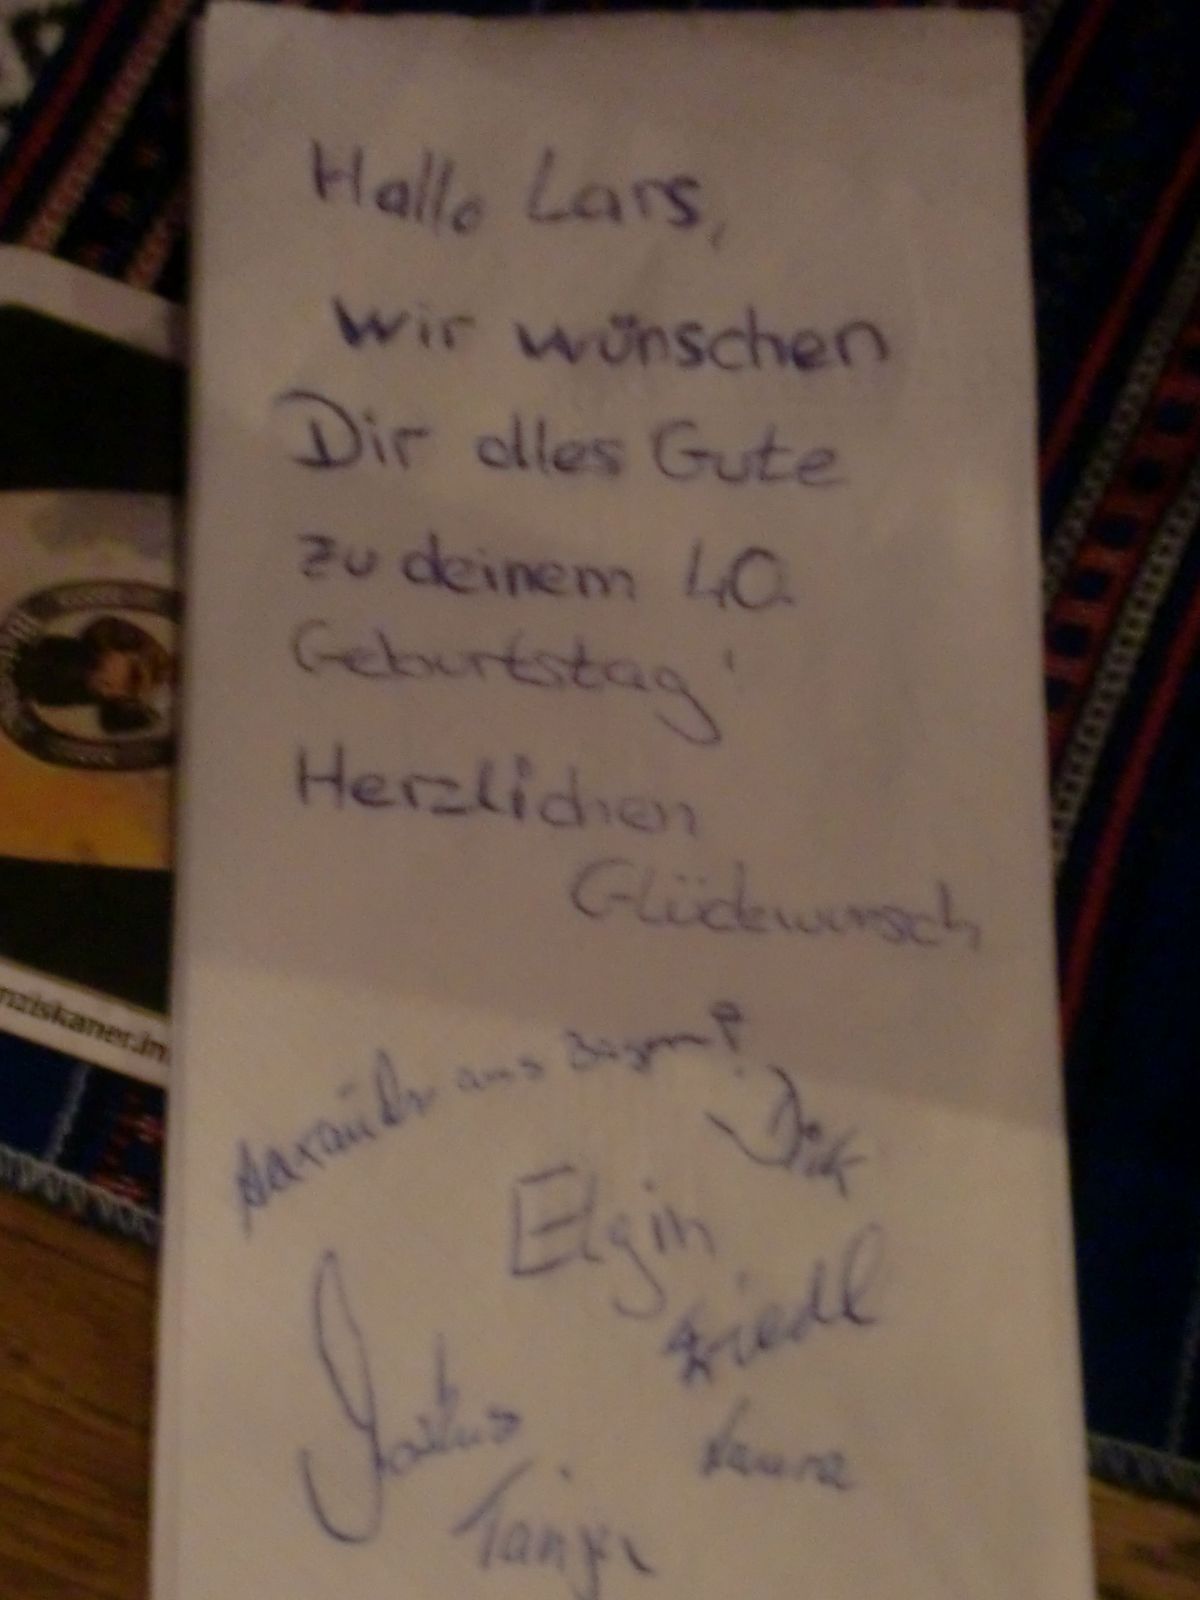 Hallo Lars,
wir wünschen
Dir alles Gute
zu deinem 40.
Geburtstag!
Herzlichen
Glückwunsch
aus
Dirk
Elgin
Friedl
Laura
Tanja
nziskaner.in